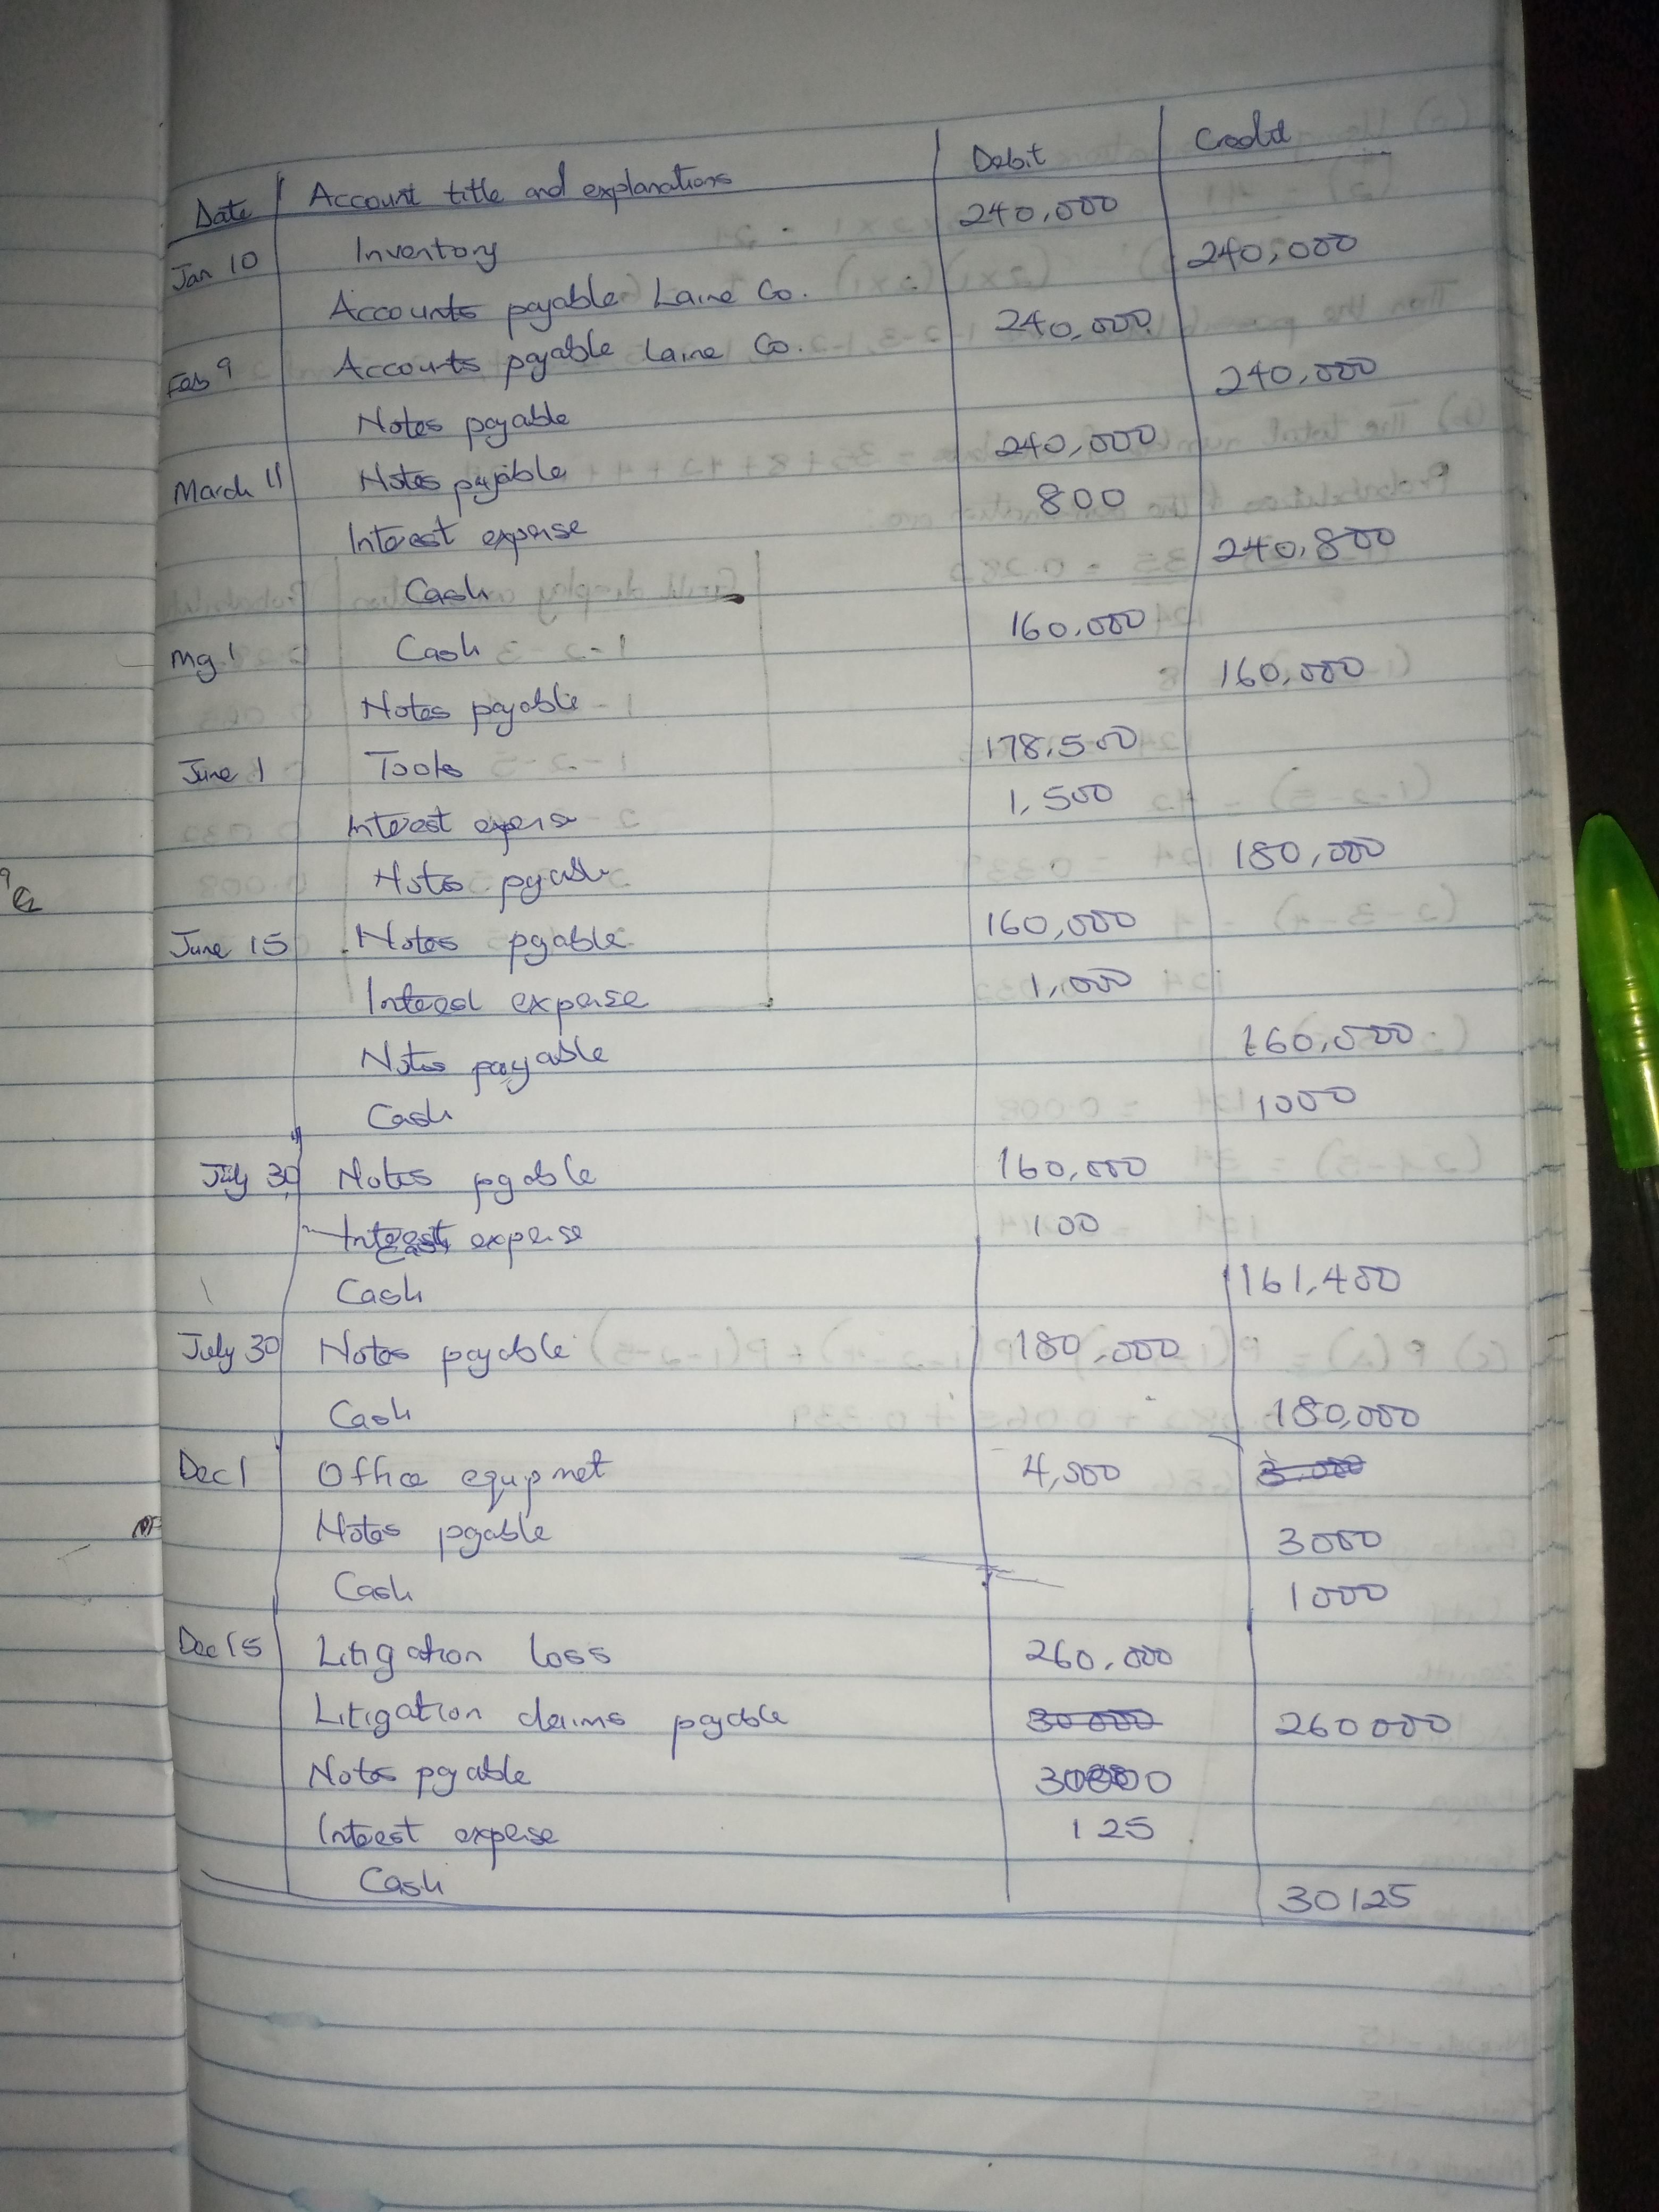 Date Account title and explanations Debit Credit
Jan 10 Inventory 240,000
Accounts payable Laine Co. 240,000
Feb 9 Accounts payable Laine Co. 240,000
Notes payable 240,000
March 11 Notes payable 240,000
Interest expense 800
Cash 240,800
May 1 Cash 160,000
Notes payable 160,000
June 1 Tools 178,500
Interest expense 1,500
Notes payable 180,000
June 15 Notes payable 160,000
Interest expense 1,000
Notes payable 160,000
Cash 1000
July 30 Notes payable 160,000
Interest expense 100
Cash 161,400
July 30 Notes payable 180,000
Cash 180,000
Dec 1 Office equpmet 4,000 3,000
Notes payable 3000
Cash 1000
Dec 15 Litigation loss 260,000
Litigation claims payable 30000 260000
Notes payable 30000
Interest expense 125
Cash 30125